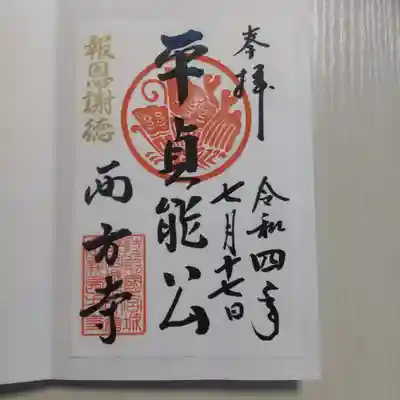 奉拝
令和四年
七月十七日
平貞能公
西方寺
報恩謝徳